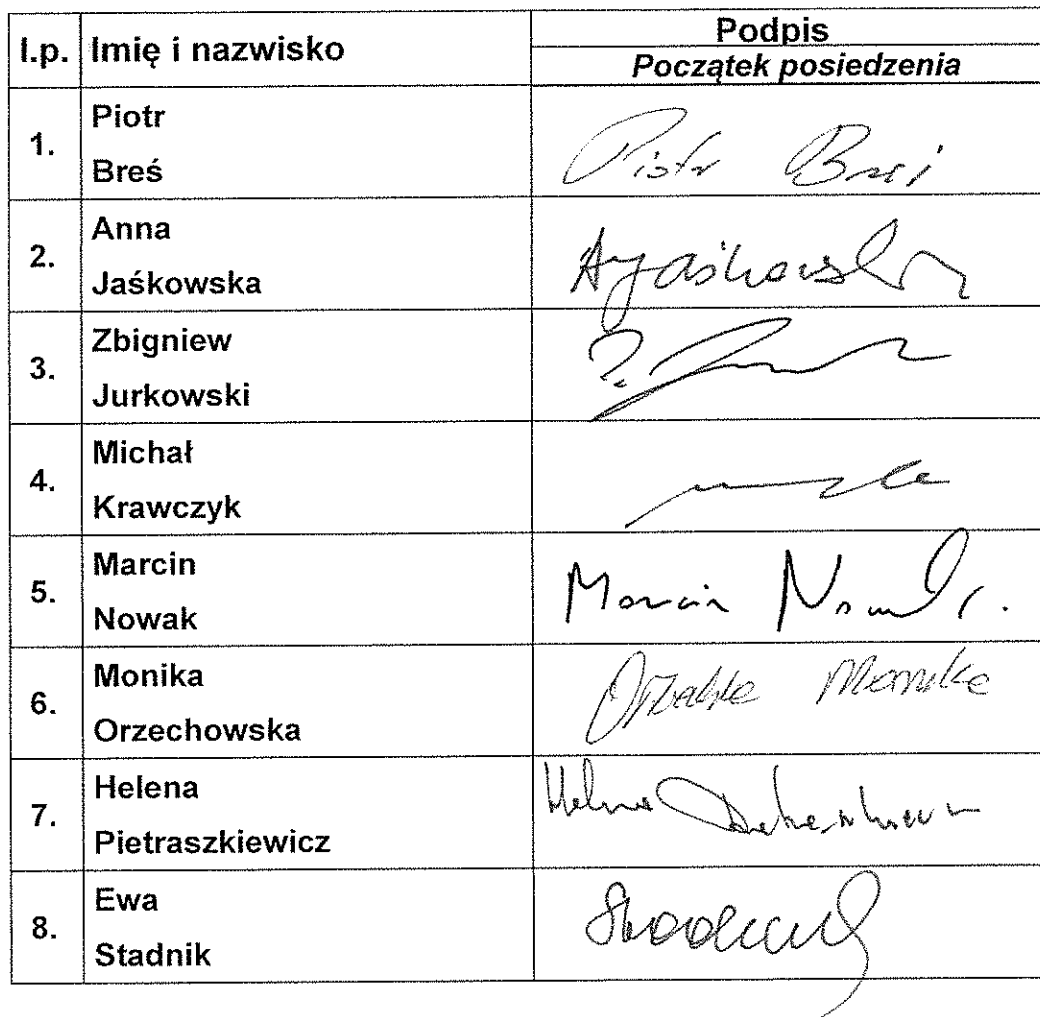 l.p. Imię i nazwisko Podpis
Początek posiedzenia
1. Piotr
Breś
Piotr Breś
2. Anna
Jaśkowska
AJaśkowska
3. Zbigniew
Jurkowski
4. Michał
Krawczyk
5. Marcin
Nowak
Marcin Nowak
6. Monika
Orzechowska
Monika
7. Helena
Pietraszkiewicz
Helena
8. Ewa
Stadnik
Stadnik